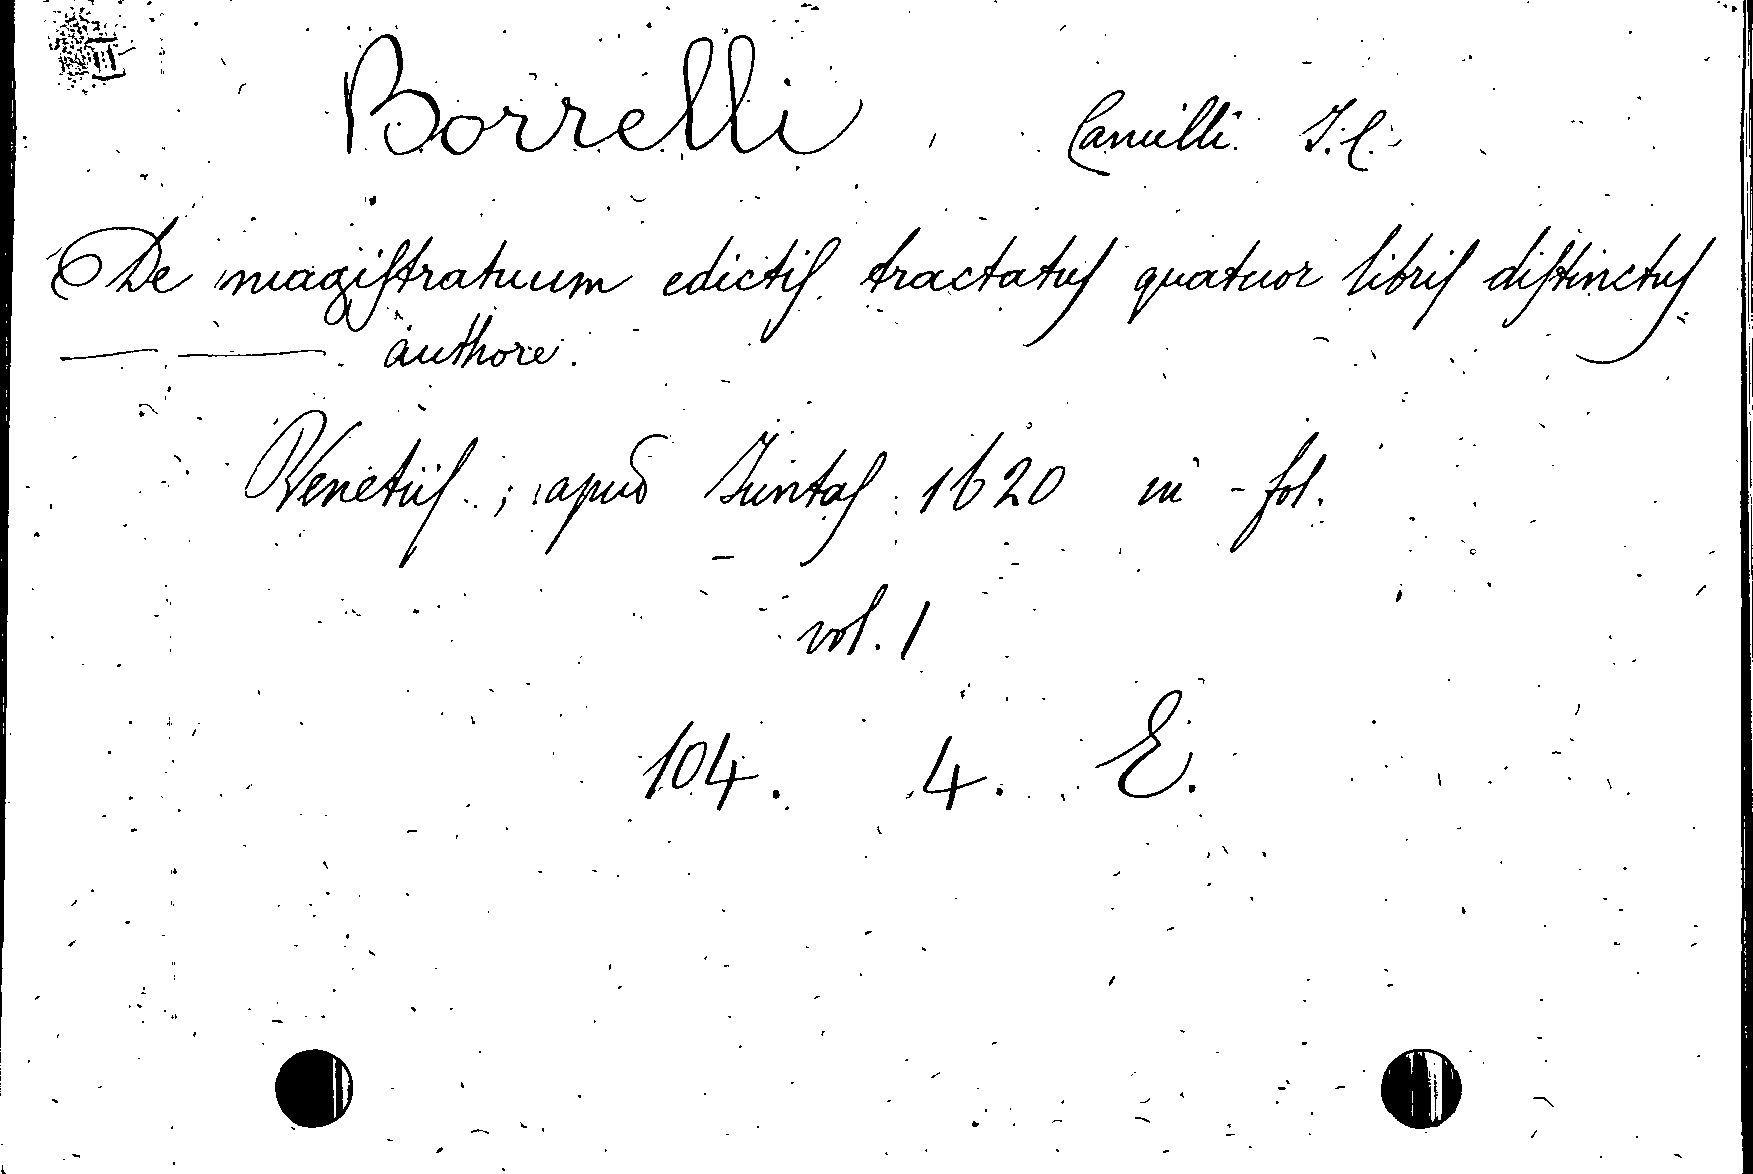 Borrelli, Camilli J.C.
De magistratuum edictis tractatus quatuor libris distinctus
—— —— authore.
Venetiis; apud Juntas 1620 in-fol.
vol. 1
104. 4. E.